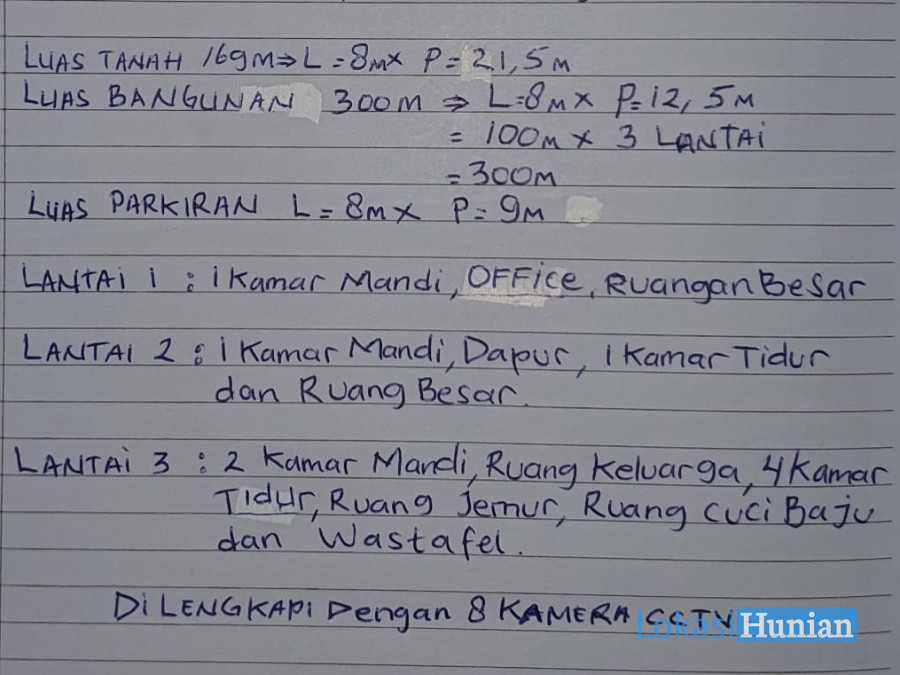 LUAS TANAH 169M⇒ L = 8M× P = 21,5M
LUAS BANGUNAN 300M ⇒ L=8M × P=12,5M
= 100M × 3 LANTAI
= 300M
LUAS PARKIRAN L = 8M × P = 9M
LANTAI 1 : 1 Kamar Mandi, OFFICE, Ruangan Besar
LANTAI 2 : 1 Kamar Mandi, Dapur, 1 Kamar Tidur
dan Ruang Besar.
LANTAI 3 : 2 Kamar Mandi, Ruang Keluarga, 4 Kamar
Tidur, Ruang Jemur, Ruang cuci Baju
dan Wastafel.
DILENGKAPI Dengan 8 KAMERA CCTV
Lokasi Hunian